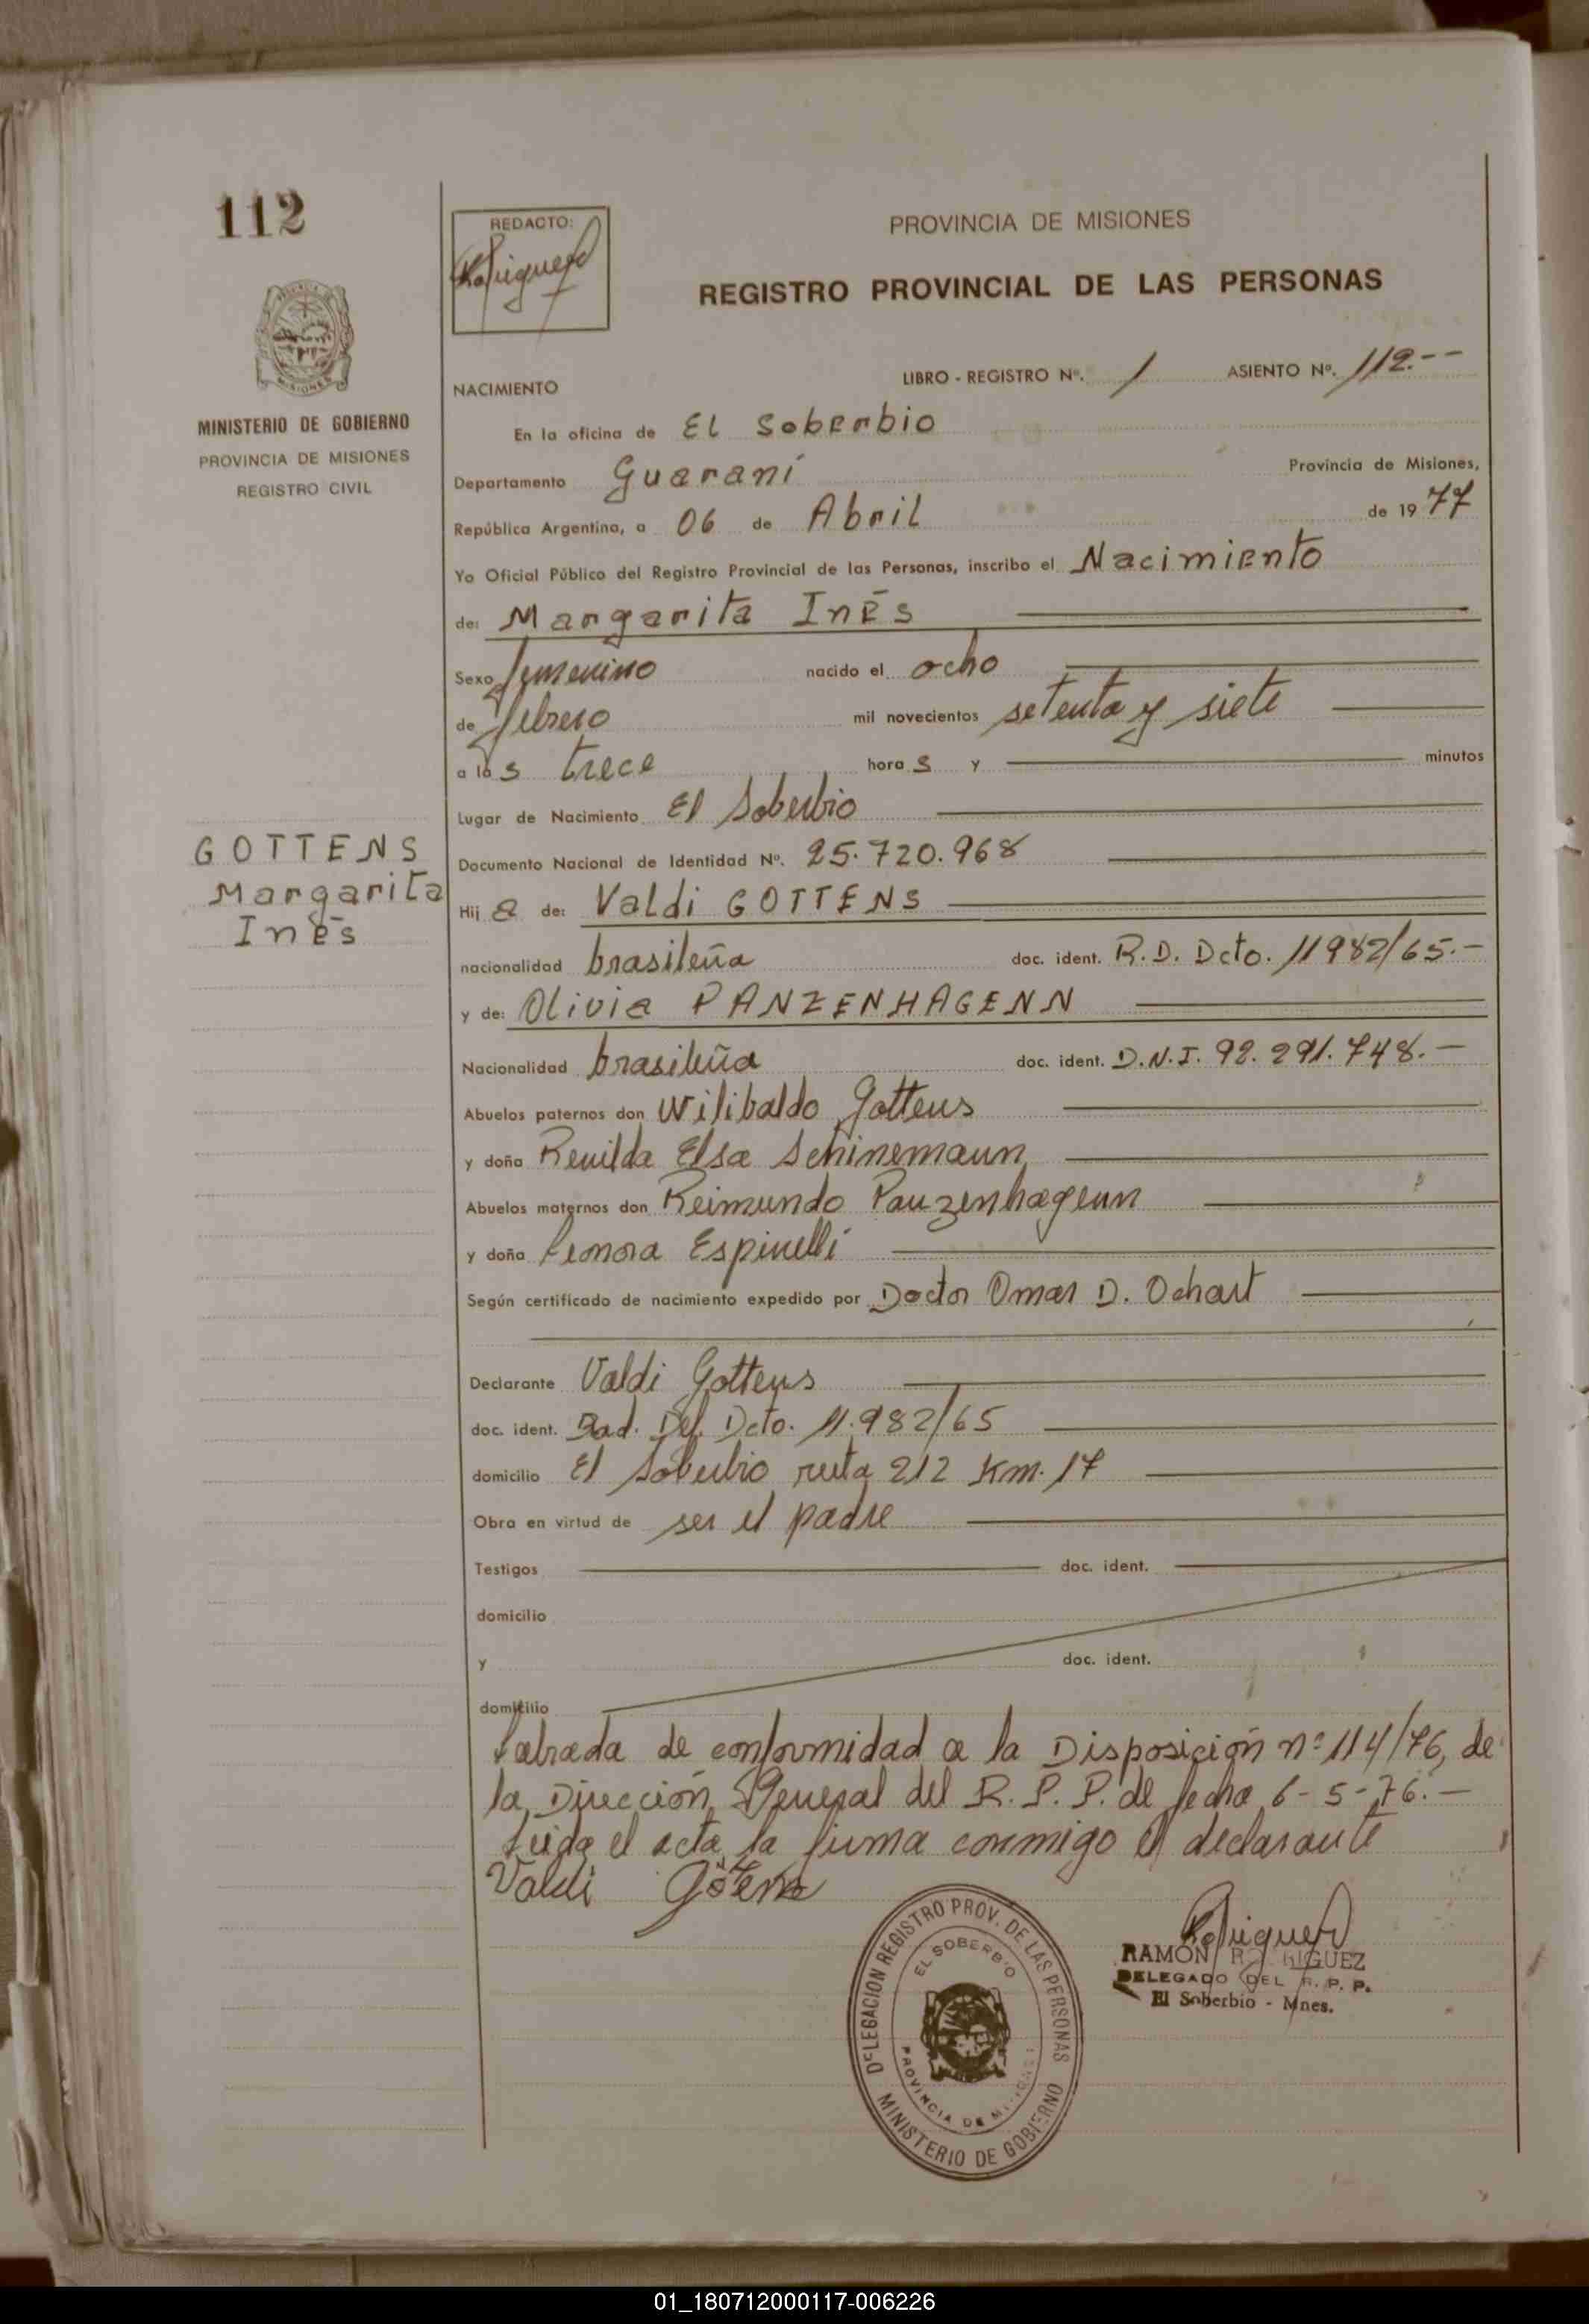 112
MINISTERIO DE GOBIERNO
PROVINCIA DE MISIONES
REGISTRO CIVIL
GOTTENS
Margarita
Inés
REDACTO:
PROVINCIA DE MISIONES
REGISTRO PROVINCIAL DE LAS PERSONAS
NACIMIENTO LIBRO - REGISTRO Nº. 1 ASIENTO Nº. 112.--
En la oficina de El Soberbio
Departamento Guaraní Provincia de Misiones,
República Argentina, a 06 de Abril de 1977
Yo Oficial Público del Registro Provincial de las Personas, inscribo el Nacimiento
de: Margarita Inés
Sexo femenino nacido el ocho
de febrero mil novecientos setenta y siete
a las trece horas y minutos
Lugar de Nacimiento El Soberbio
Documento Nacional de Identidad Nº. 25.720.968
Hija de: Valdi GOTTENS
nacionalidad brasileña doc. ident. R.D. Dcto. 11982/65.-
y de: Olivia PANZENHAGENN
Nacionalidad brasileña doc. ident. D.N.I. 92.291.748.-
Abuelos paternos don Wilibaldo Gottens
y doña Renilda Elsa Schinemann
Abuelos maternos don Reimundo Panzenhagenn
y doña Leonora Espinelli
Según certificado de nacimiento expedido por Doctor Omar D. Ochart
Declarante Valdi Gottens
doc. ident. Rad. Def. Dcto. 11.982/65
domicilio El Soberbio ruta 212 Km. 17
Obra en virtud de ser el padre
Testigos doc. ident.
domicilio
y doc. ident.
domicilio
Labrada de conformidad a la Disposición nº 114/76, de
la Dirección General del R.P.P. de fecha 6-5-76.-
Leida el acta, la firma conmigo el declarante
Valdi Gottens
DELEGACION REGISTRO PROV. DE LAS PERSONAS
EL SOBERBIO
PROVINCIA DE MISIONES
MINISTERIO DE GOBIERNO
RAMON RODRIGUEZ
DELEGADO DEL R. P. P.
El Soberbio - Mnes.
01_180712000117-006226